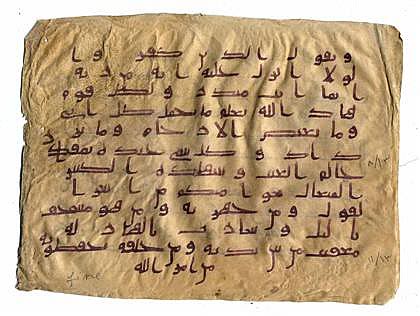 ويقول الذين كفروا
لولا انزل عليه اية من ربه
انما انت منذر ولكل قوم
هاد الله يعلم ما تحمل كل انثى
وما تغيض الارحام وما تز
داد وكل شي عنده بمقدار
علم الغيب والشهدة الكبير
المتعال سوا منكم من اسر ا
لقول ومن جهر به ومن هو مستخف
باليل وسارب بالنهار له
معقبت من بين يديه ومن خلفه يحفظونه
من امر الله